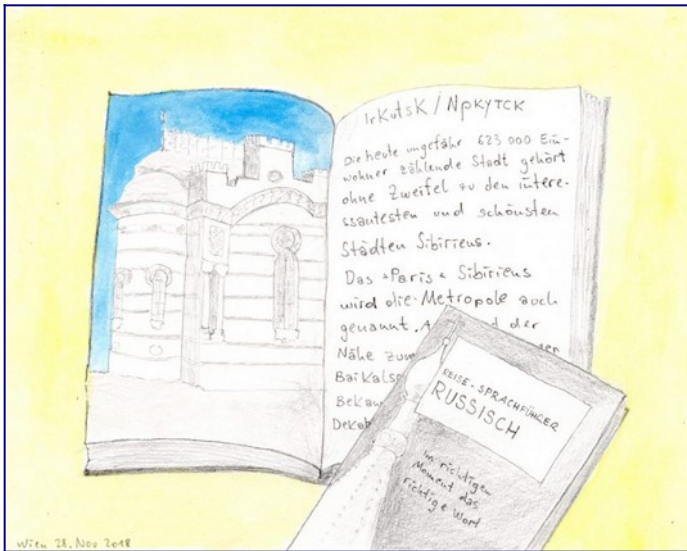 Irkutsk / Иркутск
Die heute ungefähr 623 000 Ein-
wohner zählende Stadt gehört
ohne Zweifel zu den intere-
ssantesten und schönsten
Städten Sibiriens.
Das "Paris" Sibiriens
wird die Metropole auch
genannt. A d der
Nähe zum
Baikals
Bekan
Dekab
REISE-SPRACHFÜHRER
RUSSISCH
im richtigen
Moment das
richtige Wort
Wien 28. Nov 2018